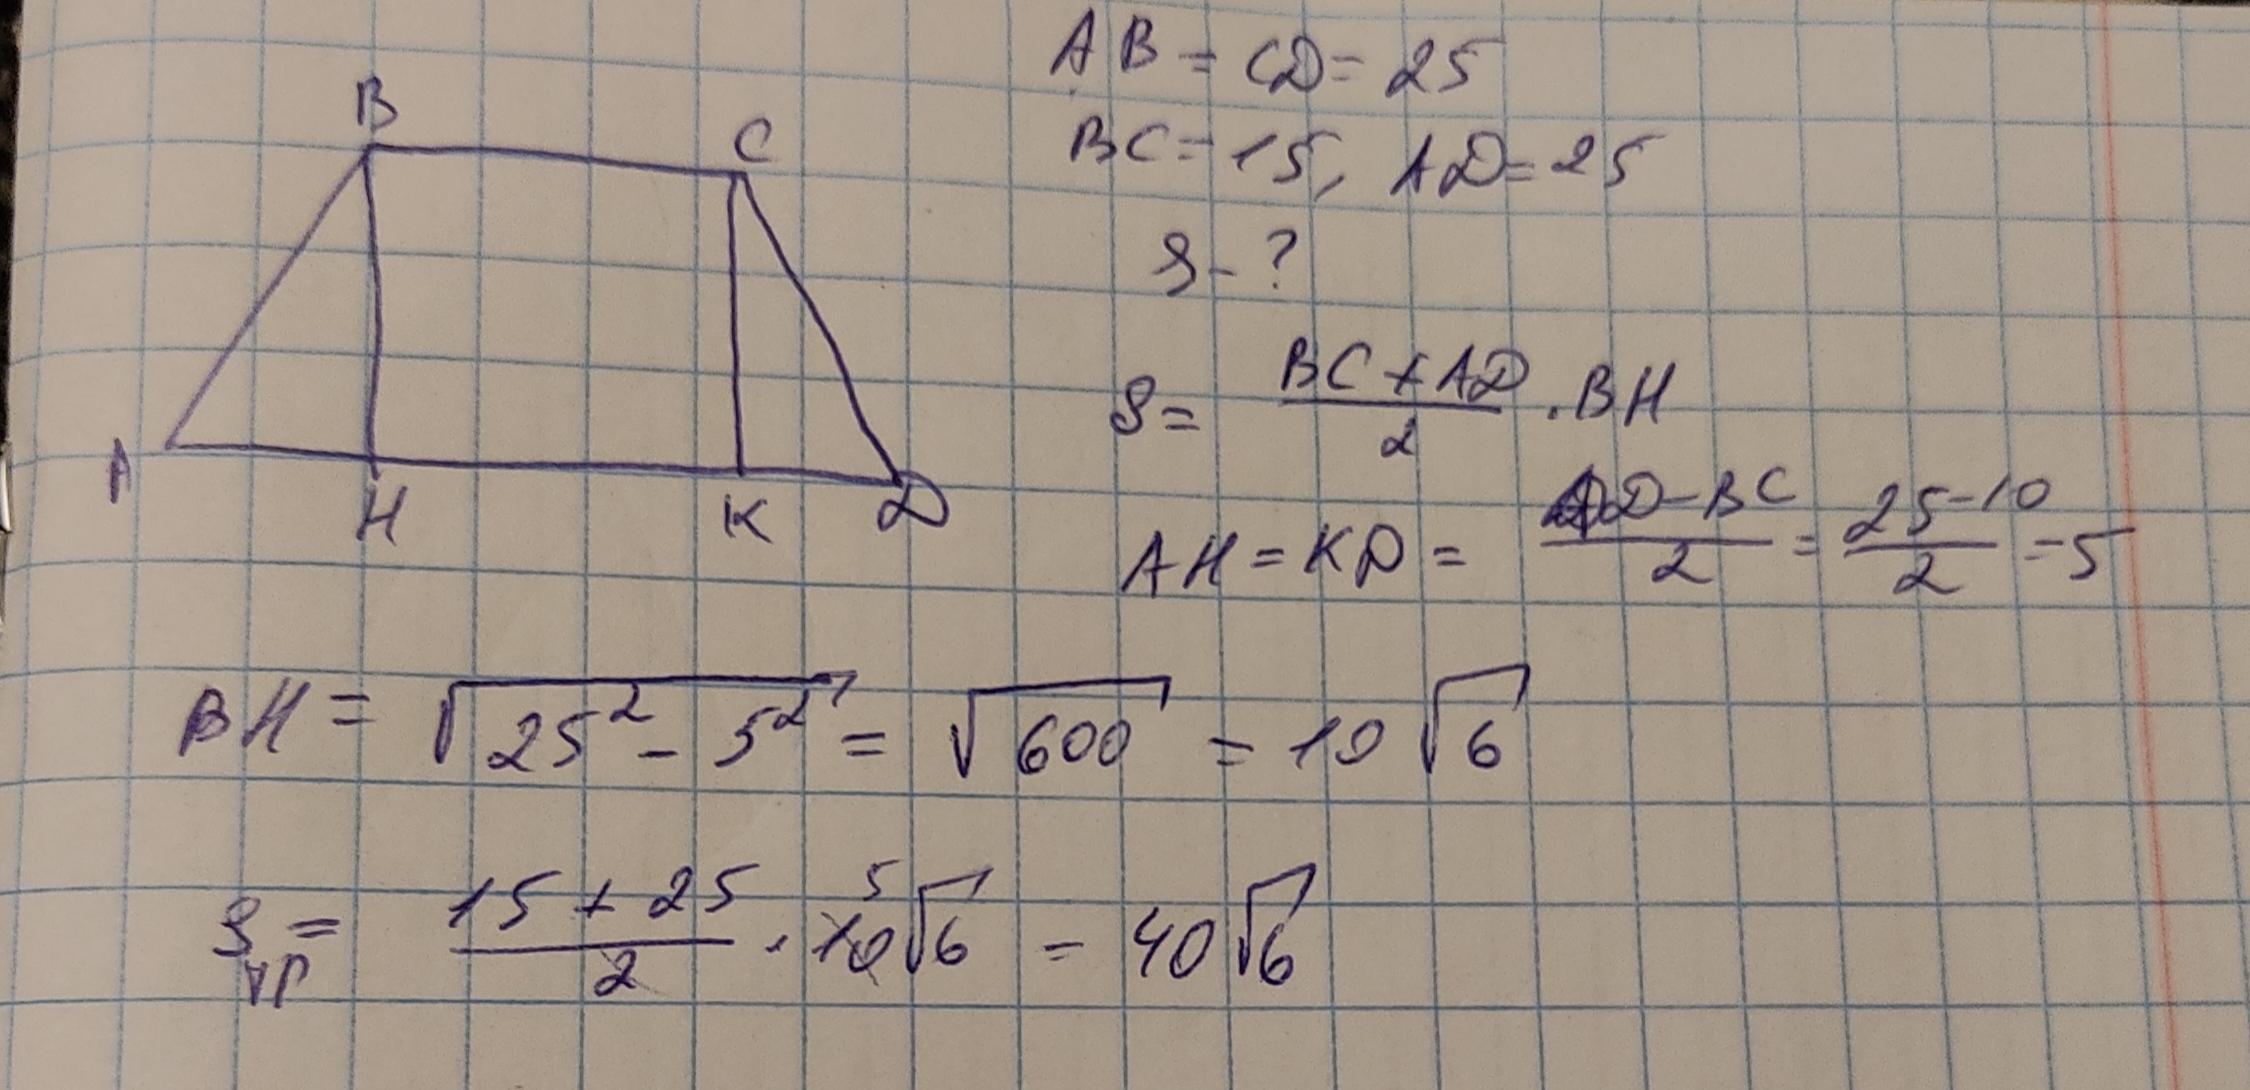 B
C
A
H
K
D
AB = CD = 25
BC = 15, AD = 25
S - ?
S = \frac{BC + AD}{2} · BH
AH = KD = \frac{AD - BC}{2} = \frac{25 - 10}{2} = 5
BH = \sqrt{25^2 - 5^2} = \sqrt{600} = 10\sqrt{6}
S_{тр} = \frac{15 + 25}{2} · \overset{5}{10}\sqrt{6} = 40\sqrt{6}